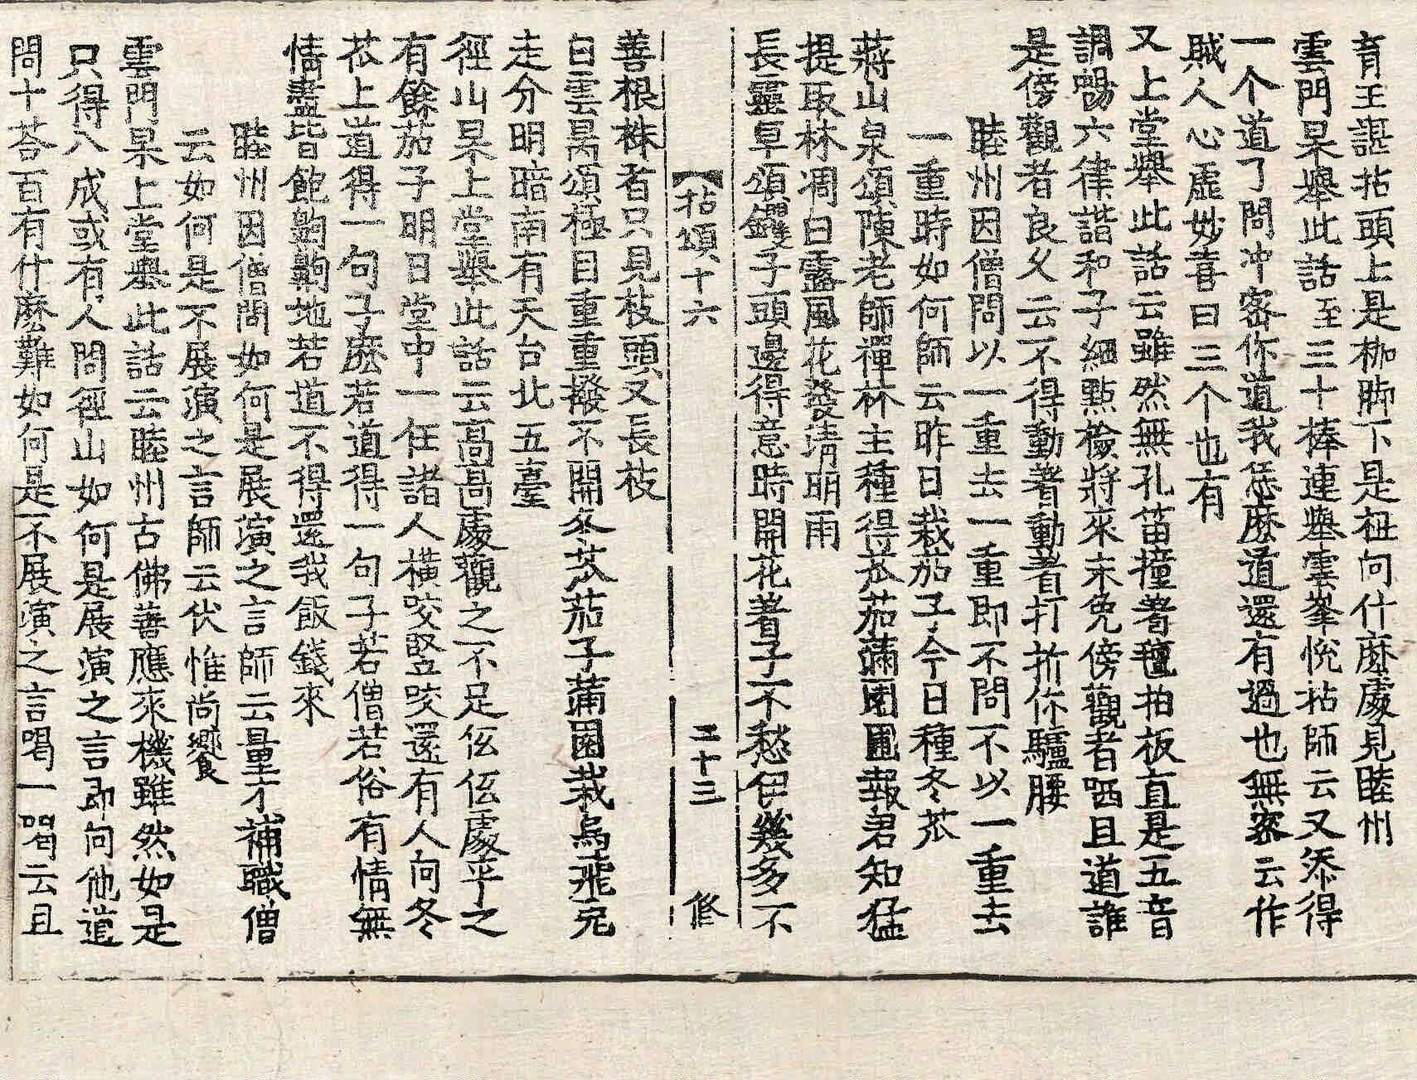 育王諶拈頭上是枷脚下是杻向什麽處見睦州
雲門杲擧此話至三十棒連擧雲峯悅拈師云又添得
一个道了問冲密你道我恁麽道還有過也無密云作
賊人心虛妙喜曰三个也有
又上堂擧此話云雖然無孔笛撞著氊拍板直是五音
調暢六律諧和子細點撿將來未免傍觀者哂且道誰
是傍觀者良久云不得動著動著打折你驢腰
睦州因僧問以一重去一重即不問不以一重去
一重時如何師云昨日栽茄子今日種冬苽
蔣山泉頌陳老師禪林主種得苽茄滿園圃報君知猛
提取林凋白露風花發淸明雨
長靈卓頌钁子頭邊得意時開花著子不愁伊幾多不
拈頌十六 二十三 修
善根株者只見枝頭又長枝
白雲昺頌極目重重撥不開冬苽茄子滿園栽烏飛兎
走分明暗南有天台北五臺
徑山杲上堂擧此話云高高處觀之不足低低處平之
有餘茄子明日堂中一任諸人橫咬竪咬還有人向冬
苽上道得一句子麽若道得一句子若僧若俗有情無
情盡皆飽齁齁地若道不得還我飯錢來
睦州因僧問如何是展演之言師云量才補職僧
云如何是不展演之言師云伏惟尚饗
雲門杲上堂擧此話云睦州古佛善應來機雖然如是
只得八成或有人問徑山如何是展演之言即向他道
問十荅百有什麽難如何是不展演之言喝一喝云且